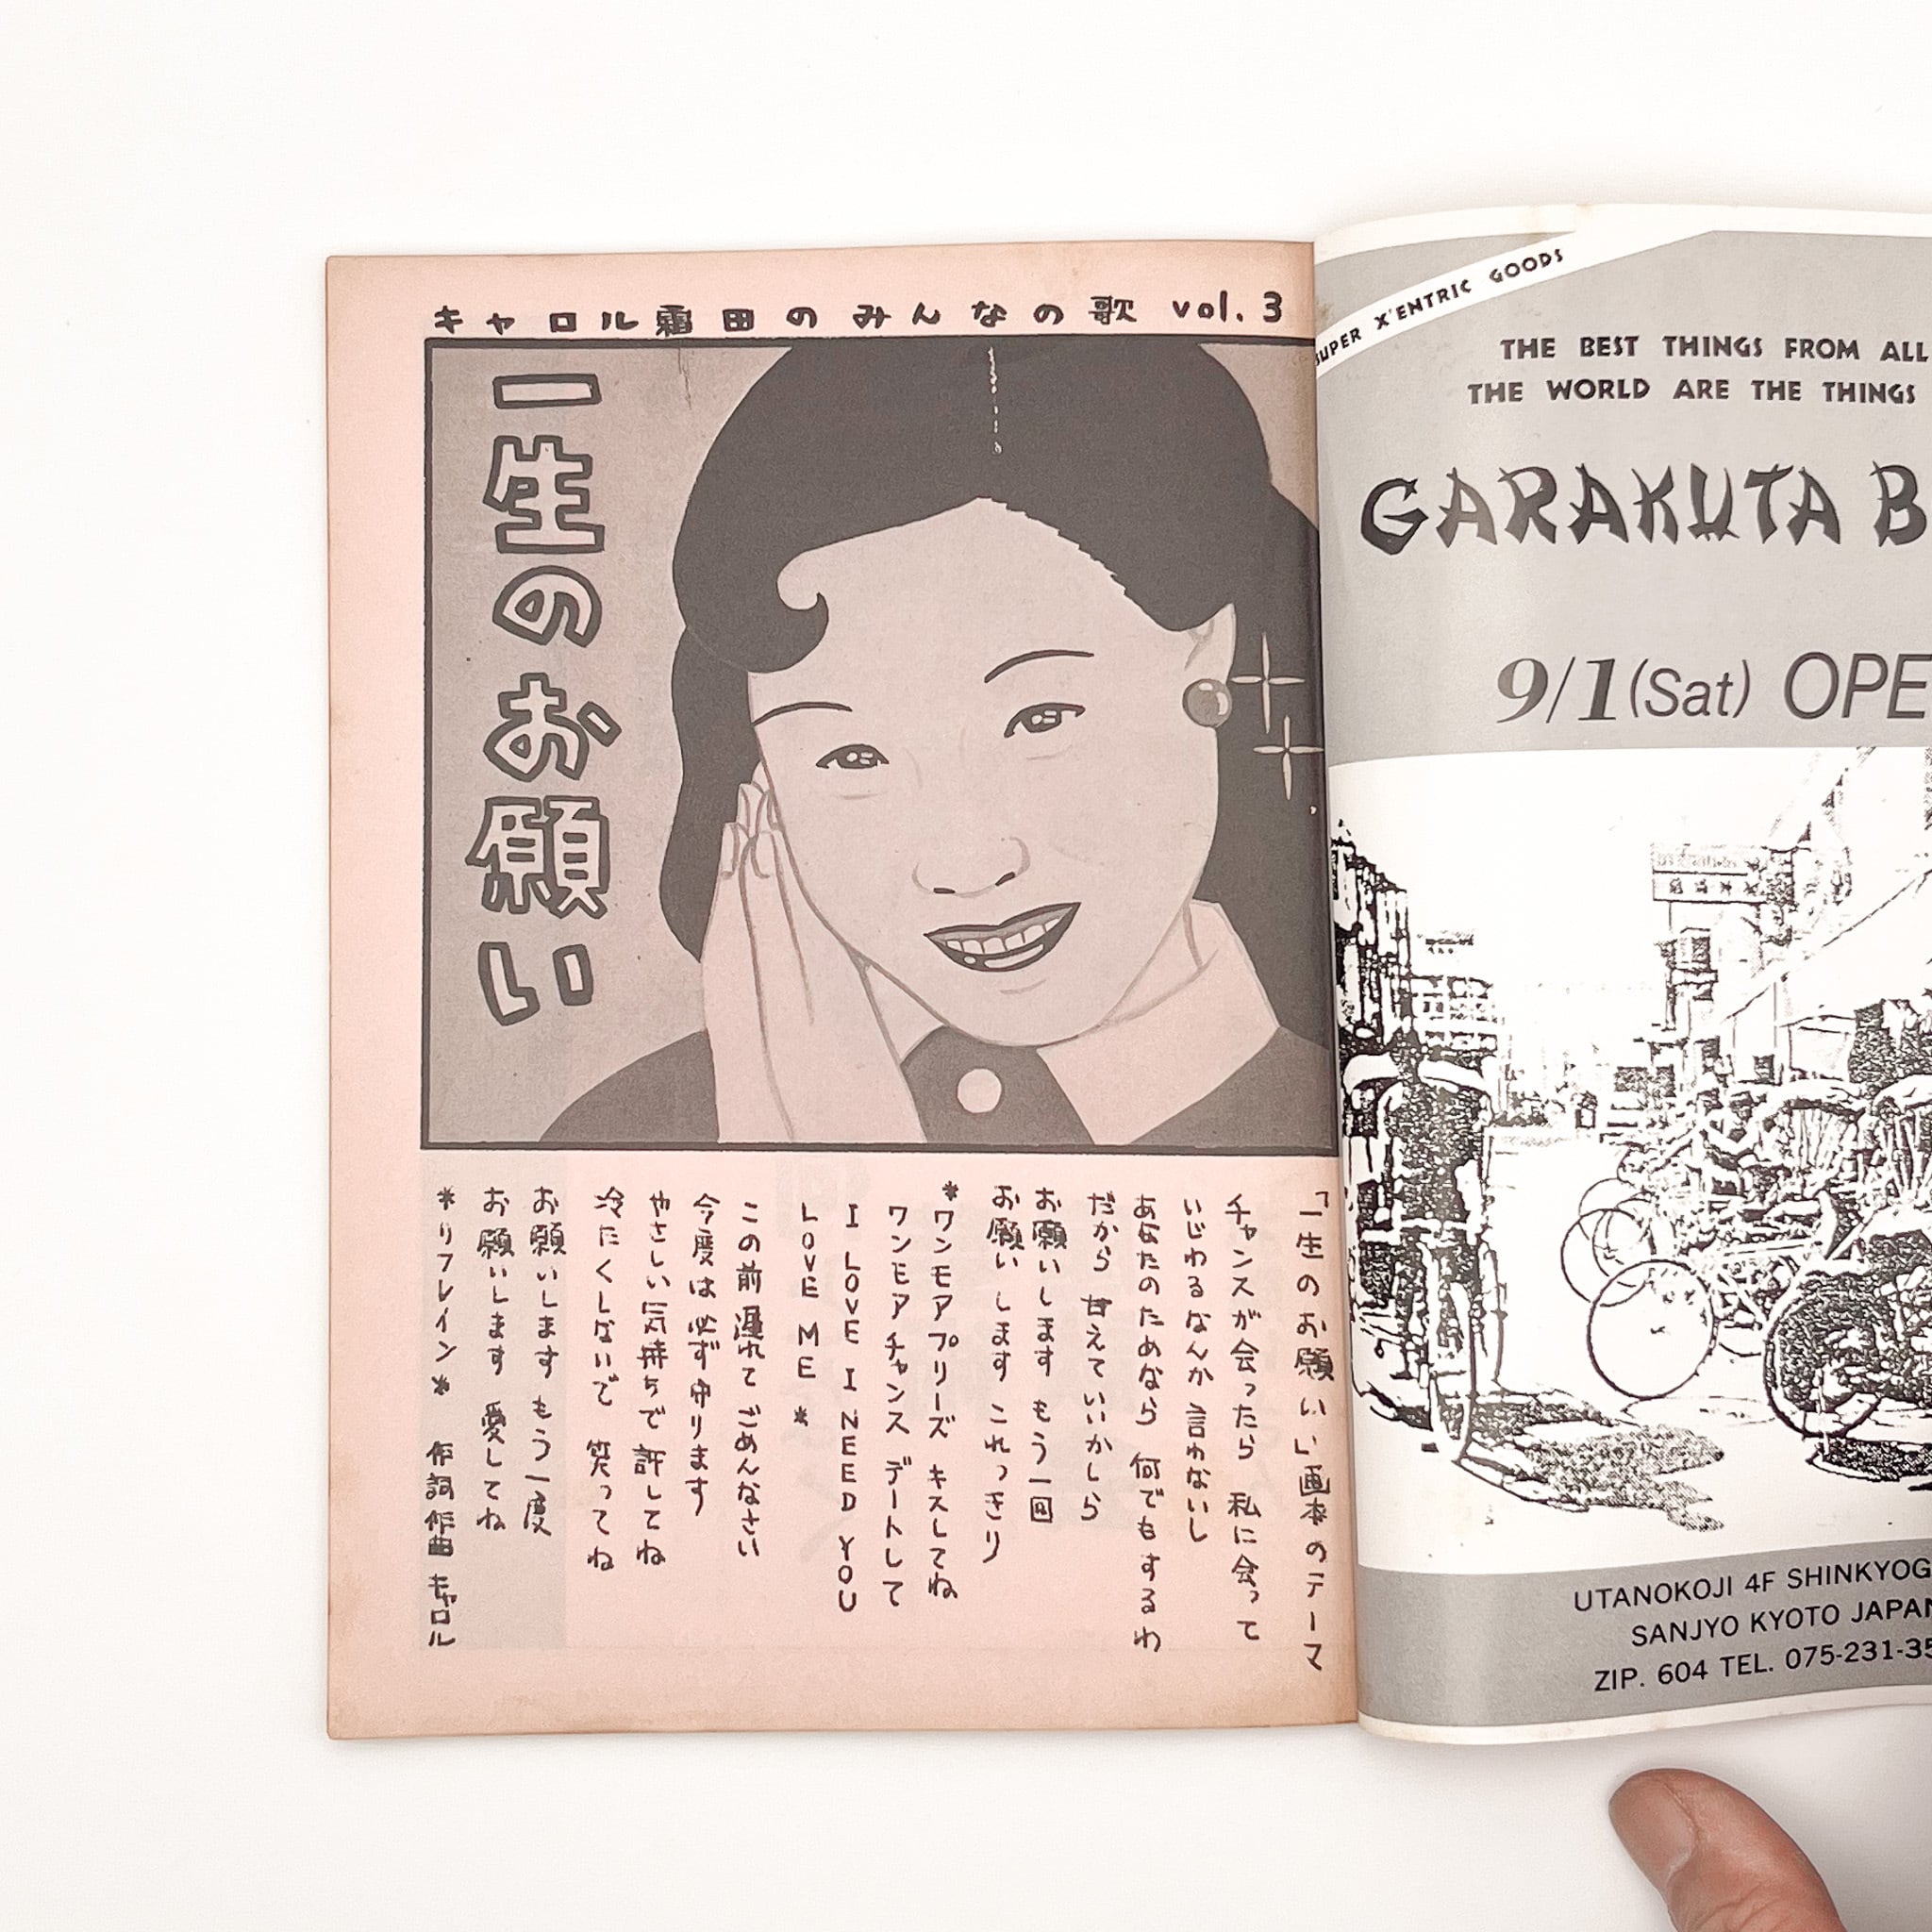 キャロル霜田のみんなの歌 vol.3
一生のお願い
「一生のお願い」画本のテーマ
チャンスが会ったら 私に会って
いじわるなんか 言わないし
あなたのためなら 何でもするわ
だから 甘えていいかしら
お願いします もう一回
お願いします これっきり
*ワンモアプリーズ キスしてね
ワンモアチャンス デートして
I LOVE I NEED YOU
LOVE ME *
この前 遅れて ごめんなさい
今度は 必ず 守ります
やさしい気持ちで 許してね
冷たくしないで 笑ってね
お願いします もう一度
お願いします 愛してね
*リフレイン* 作詞 作曲 キャロル
SUPER X'ENTRIC GOODS
THE BEST THINGS FROM ALL
THE WORLD ARE THE THINGS
GARAKUTA B
9/1(Sat) OPE
UTANOKOJI 4F SHINKYOG
SANJYO KYOTO JAPAN
ZIP. 604 TEL. 075-231-35